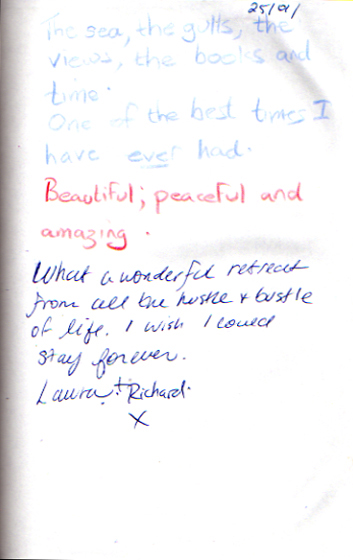 25/01/
The sea, the gulls, the
views, the books and
time.
One of the best times I
have ever had.
Beautiful; peaceful and
amazing.
What a wonderful retreat
from all the hustle + bustle
of life. I wish I could
stay forever.
Laura + Richard.
X